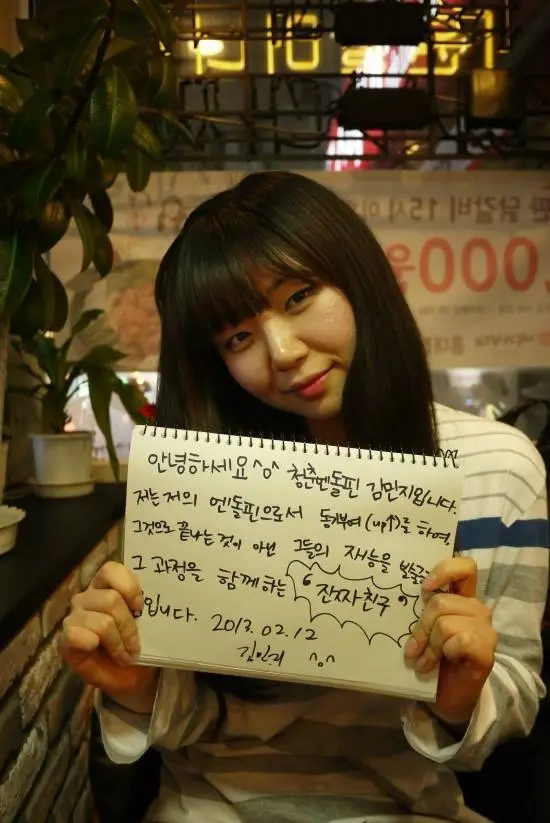 안녕하세요^o^ 청춘멘돌핀 김민지입니다.
저는 저의 멘돌핀으로서 동기부여(up↑)를 하여,
그것으로 끝나는 것이 아닌 그들의 재능을
그 과정을 함께하는 "잔자친구"
입니다. 2013. 02. 12
김민지 ^o^
닭갈비 15시
000원